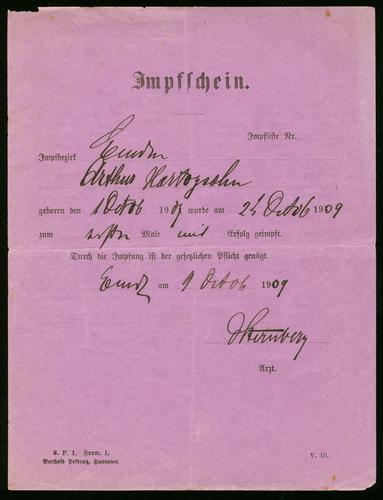 Impfschein.
Impfliste Nr.
Impfbezirk Emden
Arthur Hartogsohn
geboren den 1 Octob 190 wurde am 2 Octob 1909
zum ersten Male mit Erfolg geimpft.
Durch die Impfung ist der gesetzlichen Pflicht genügt.
Emd am 9 Octob 1909
Sternberg
Arzt.
S. P. 1. Form. 1.
V. 10.
Berthold Pokrantz, Hannover.